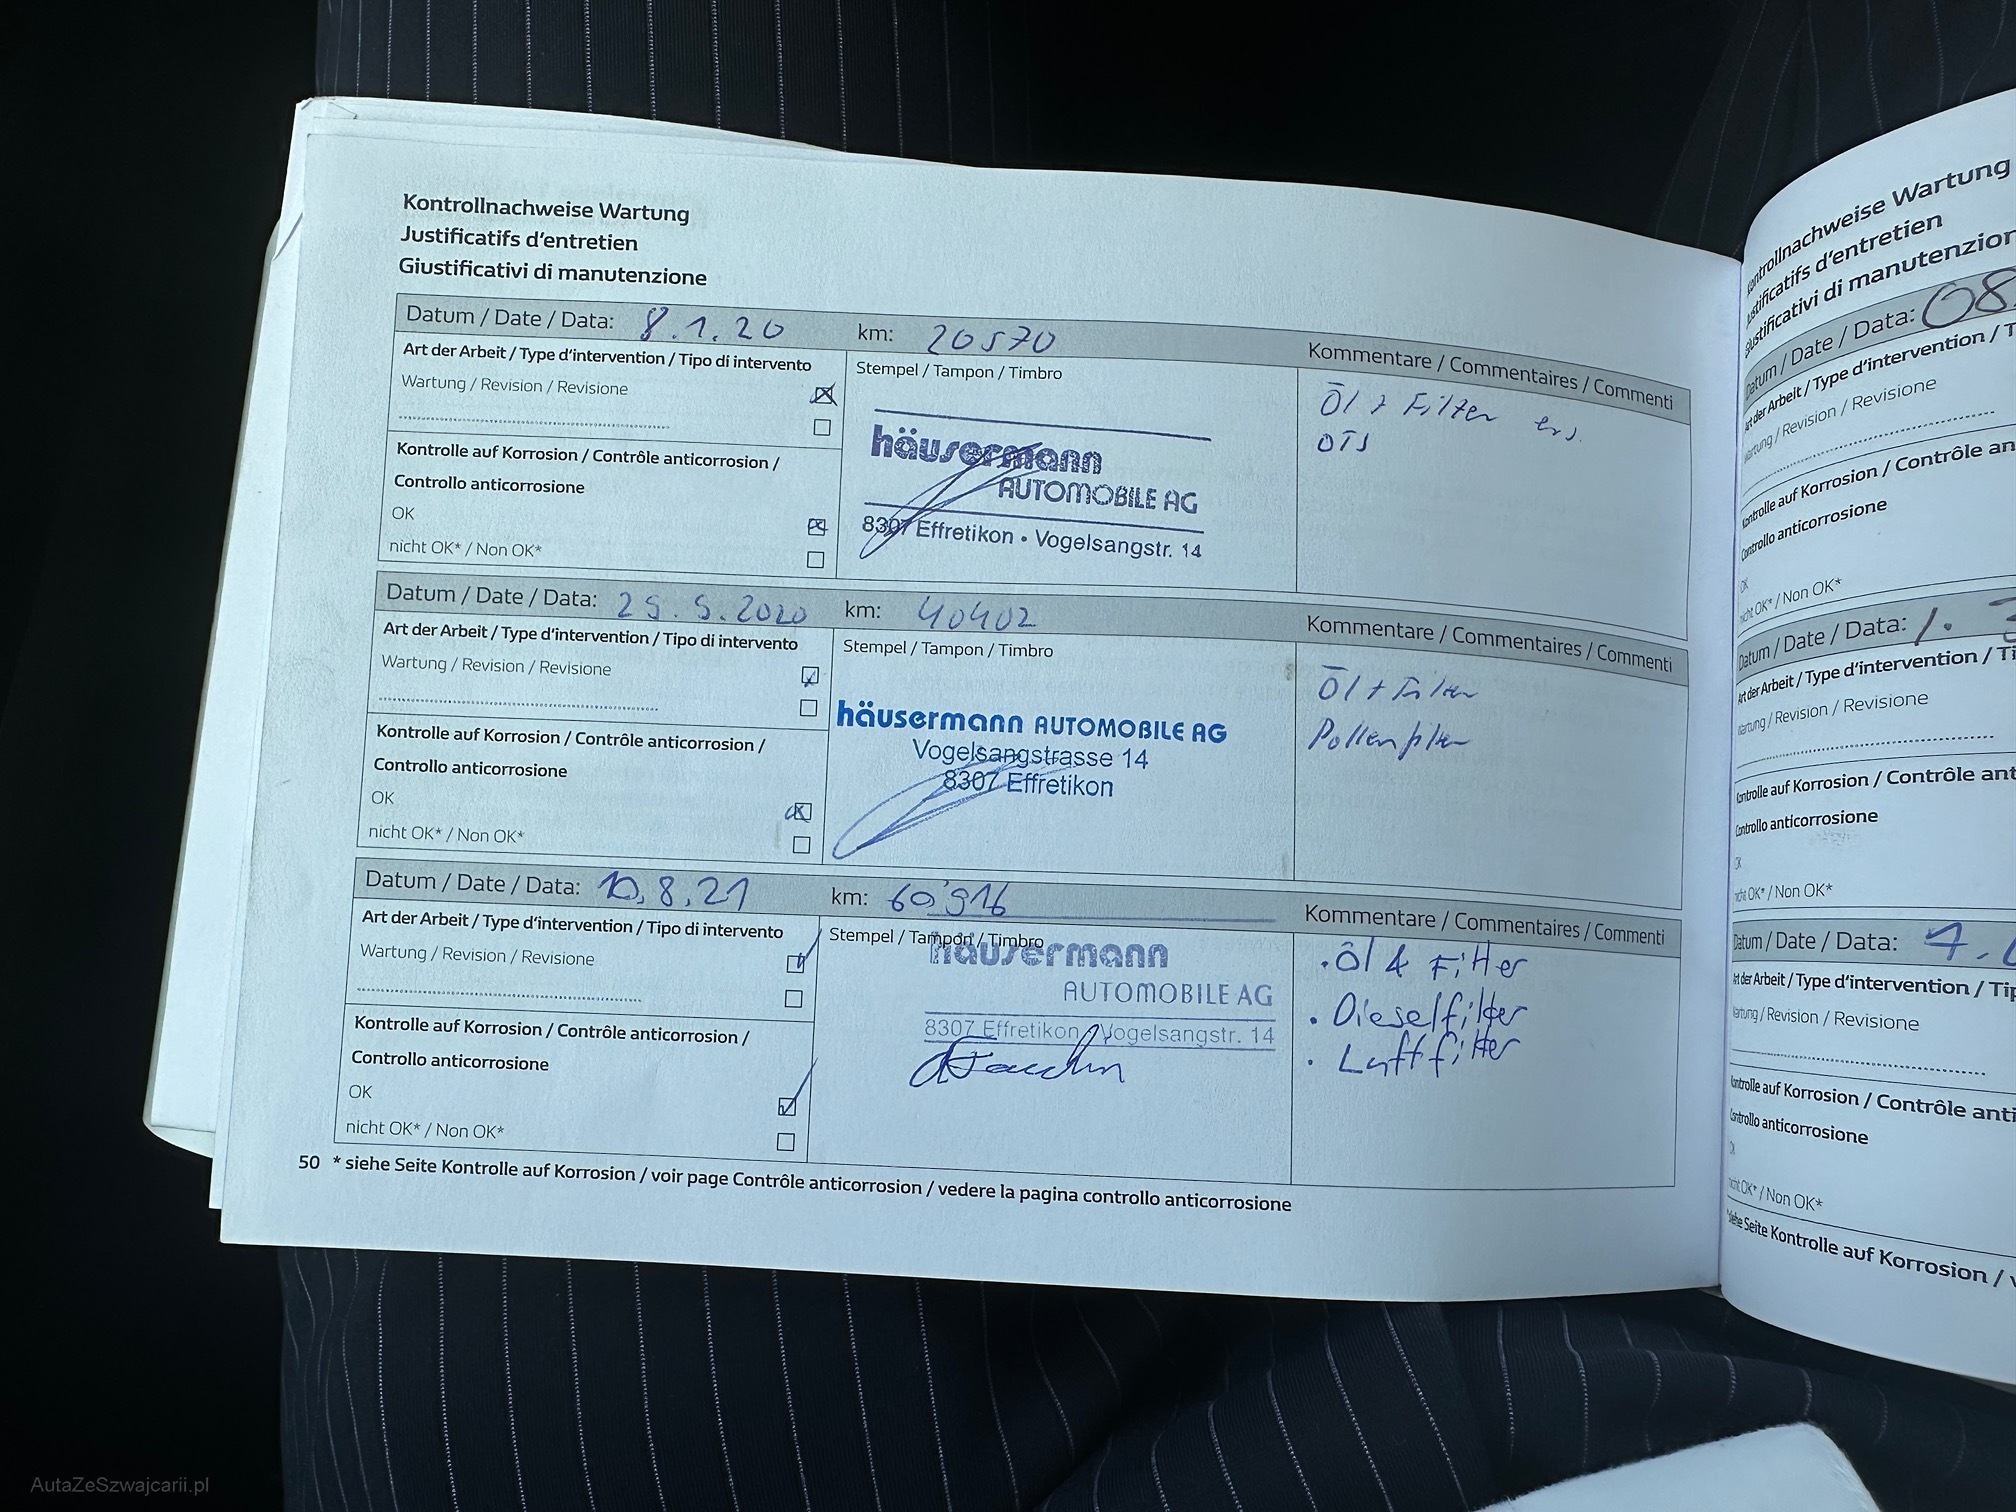 Kontrollnachweise Wartung
Justificatifs d'entretien
Giustificativi di manutenzione
Datum / Date / Data: 8.1.20 km: 20570
Kommentare / Commentaires / Commenti
Art der Arbeit / Type d'intervention / Tipo di intervento
Wartung / Revision / Revisione
Stempel / Tampon / Timbro
Öl + Filter ers.
OTS
häusermann
AUTOMOBILE AG
8307 Effretikon • Vogelsangstr. 14
Kontrolle auf Korrosion / Contrôle anticorrosion /
Controllo anticorrosione
OK
nicht OK* / Non OK*
Datum / Date / Data: 25.5.2020 km: 40402
Kommentare / Commentaires / Commenti
Art der Arbeit / Type d'intervention / Tipo di intervento
Wartung / Revision / Revisione
Stempel / Tampon / Timbro
Öl + Filter
Pollenfilter
häusermann AUTOMOBILE AG
Vogelsangstrasse 14
8307 Effretikon
Kontrolle auf Korrosion / Contrôle anticorrosion /
Controllo anticorrosione
OK
nicht OK* / Non OK*
Datum / Date / Data: 10.8.21 km: 60'916
Kommentare / Commentaires / Commenti
Art der Arbeit / Type d'intervention / Tipo di intervento
Wartung / Revision / Revisione
Stempel / Tampon / Timbro
• Öl & Filter
• Dieselfilter
• Luftfilter
häusermann
AUTOMOBILE AG
8307 Effretikon Vogelsangstr. 14
Kontrolle auf Korrosion / Contrôle anticorrosion /
Controllo anticorrosione
OK
nicht OK* / Non OK*
50 * siehe Seite Kontrolle auf Korrosion / voir page Contrôle anticorrosion / vedere la pagina controllo anticorrosione
Kontrollnachweise Wartung
Justificatifs d'entretien
Giustificativi di manutenzion
Datum / Date / Data: 08.
Art der Arbeit / Type d'intervention / T
Wartung / Revision / Revisione
Kontrolle auf Korrosion / Contrôle an
Controllo anticorrosione
OK
nicht OK* / Non OK*
Datum / Date / Data: 1.
Art der Arbeit / Type d'intervention / Ti
Wartung / Revision / Revisione
Kontrolle auf Korrosion / Contrôle ant
Controllo anticorrosione
OK
nicht OK* / Non OK*
Datum / Date / Data: 7.
Art der Arbeit / Type d'intervention / Tip
Wartung / Revision / Revisione
Kontrolle auf Korrosion / Contrôle anti
Controllo anticorrosione
nicht OK* / Non OK*
*siehe Seite Kontrolle auf Korrosion / v
AutaZeSzwajcarii.pl